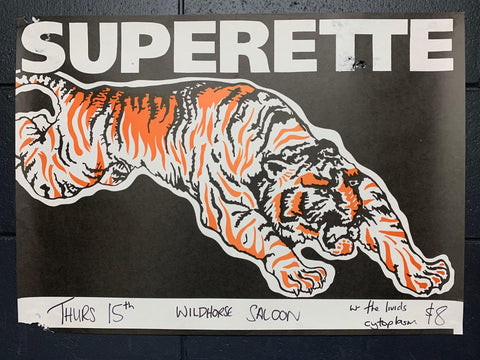 SUPERETTE
THURS 15th WILDHORSE SALOON w/ the livids $8
cytoplasm